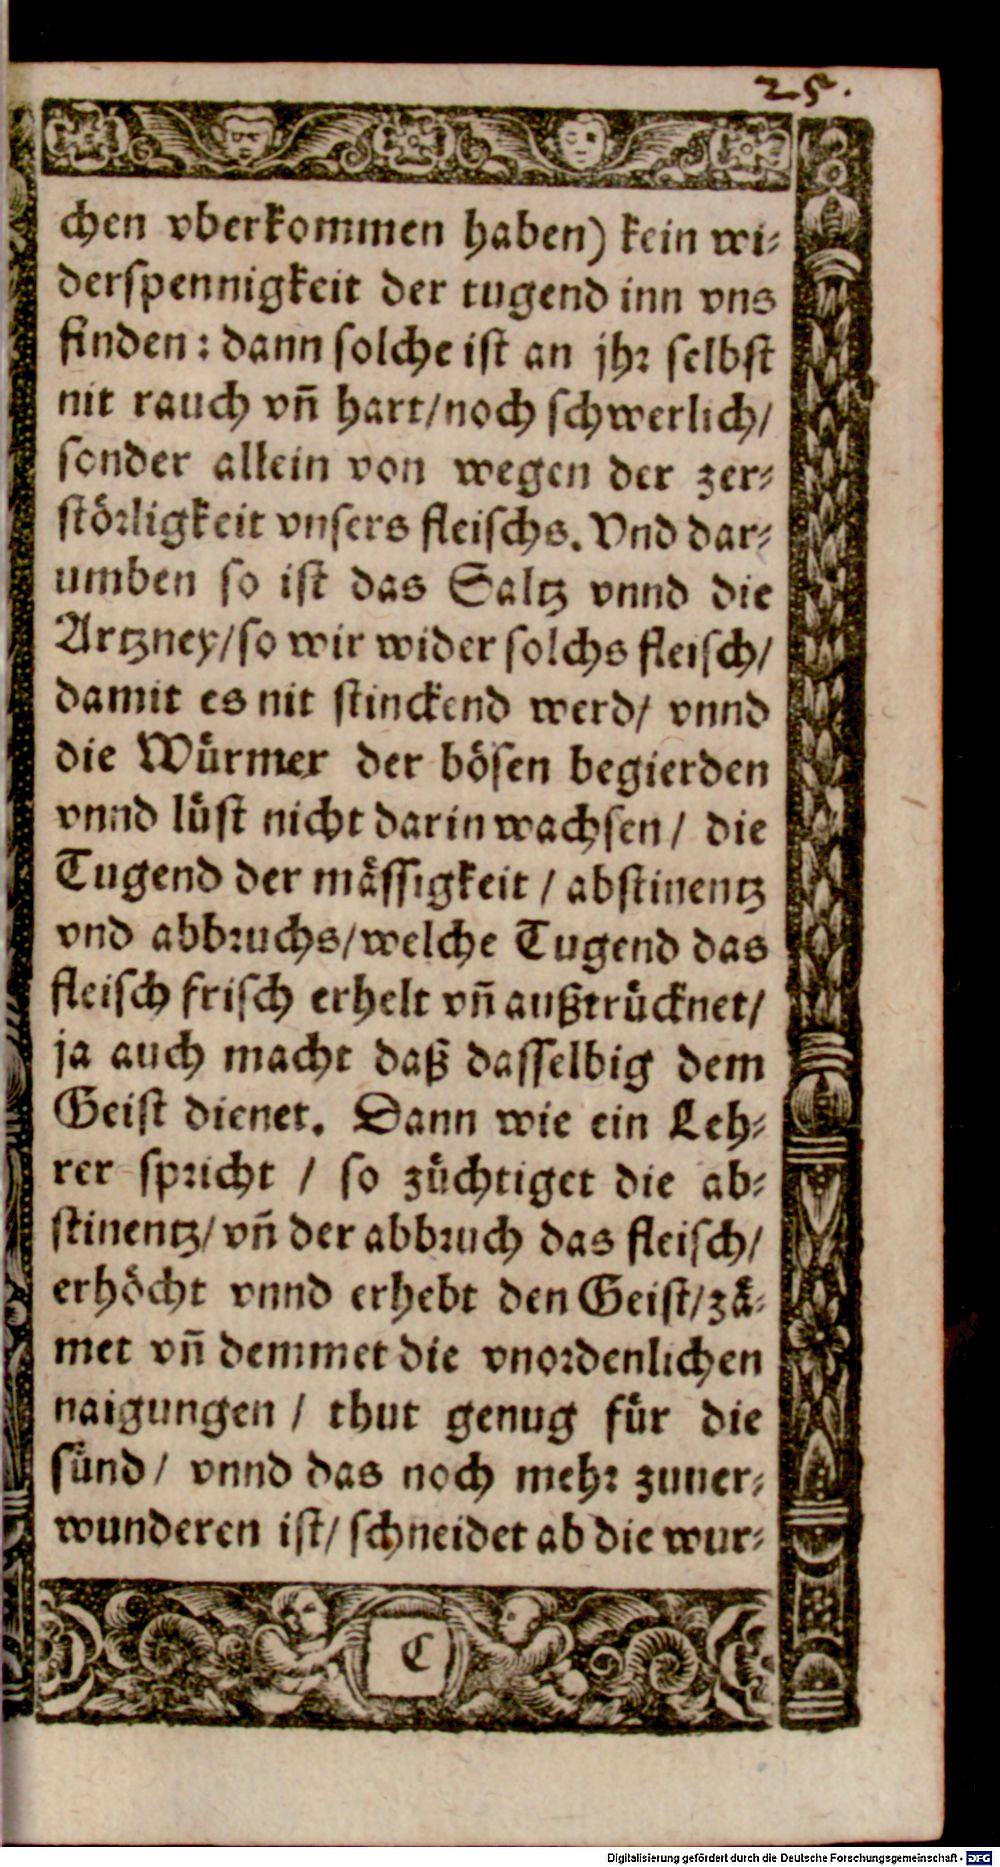 25.
chen vberkommen haben) kein wi⸗
derspennigkeit der tugend inn vns
finden: dann solche ist an jhr selbst
nit rauch vñ hart/noch schwerlich/
sonder allein von wegen der zer⸗
störligkeit vnsers fleischs. Vnd dar⸗
umben so ist das Saltz vnnd die
Artzney/so wir wider solchs fleisch/
damit es nit stinckend werd/ vnnd
die Würmer der bösen begierden
vnnd lüst nicht darin wachsen/ die
Tugend der mässigkeit / abstinentz
vnd abbruchs/welche Tugend das
fleisch frisch erhelt vñ außtrücknet/
ja auch macht daß dasselbig dem
Geist dienet. Dann wie ein Leh⸗
rer spricht / so züchtiget die ab⸗
stinentz/ vñ der abbruch das fleisch/
erhöcht vnnd erhebt den Geist/zä⸗
met vñ demmet die vnordenlichen
naigungen / thut genug für die
sünd/ vnnd das noch mehr zuuer⸗
wunderen ist/ schneidet ab die wur⸗
C
Digitalisierung gefördert durch die Deutsche Forschungsgemeinschaft - DFG